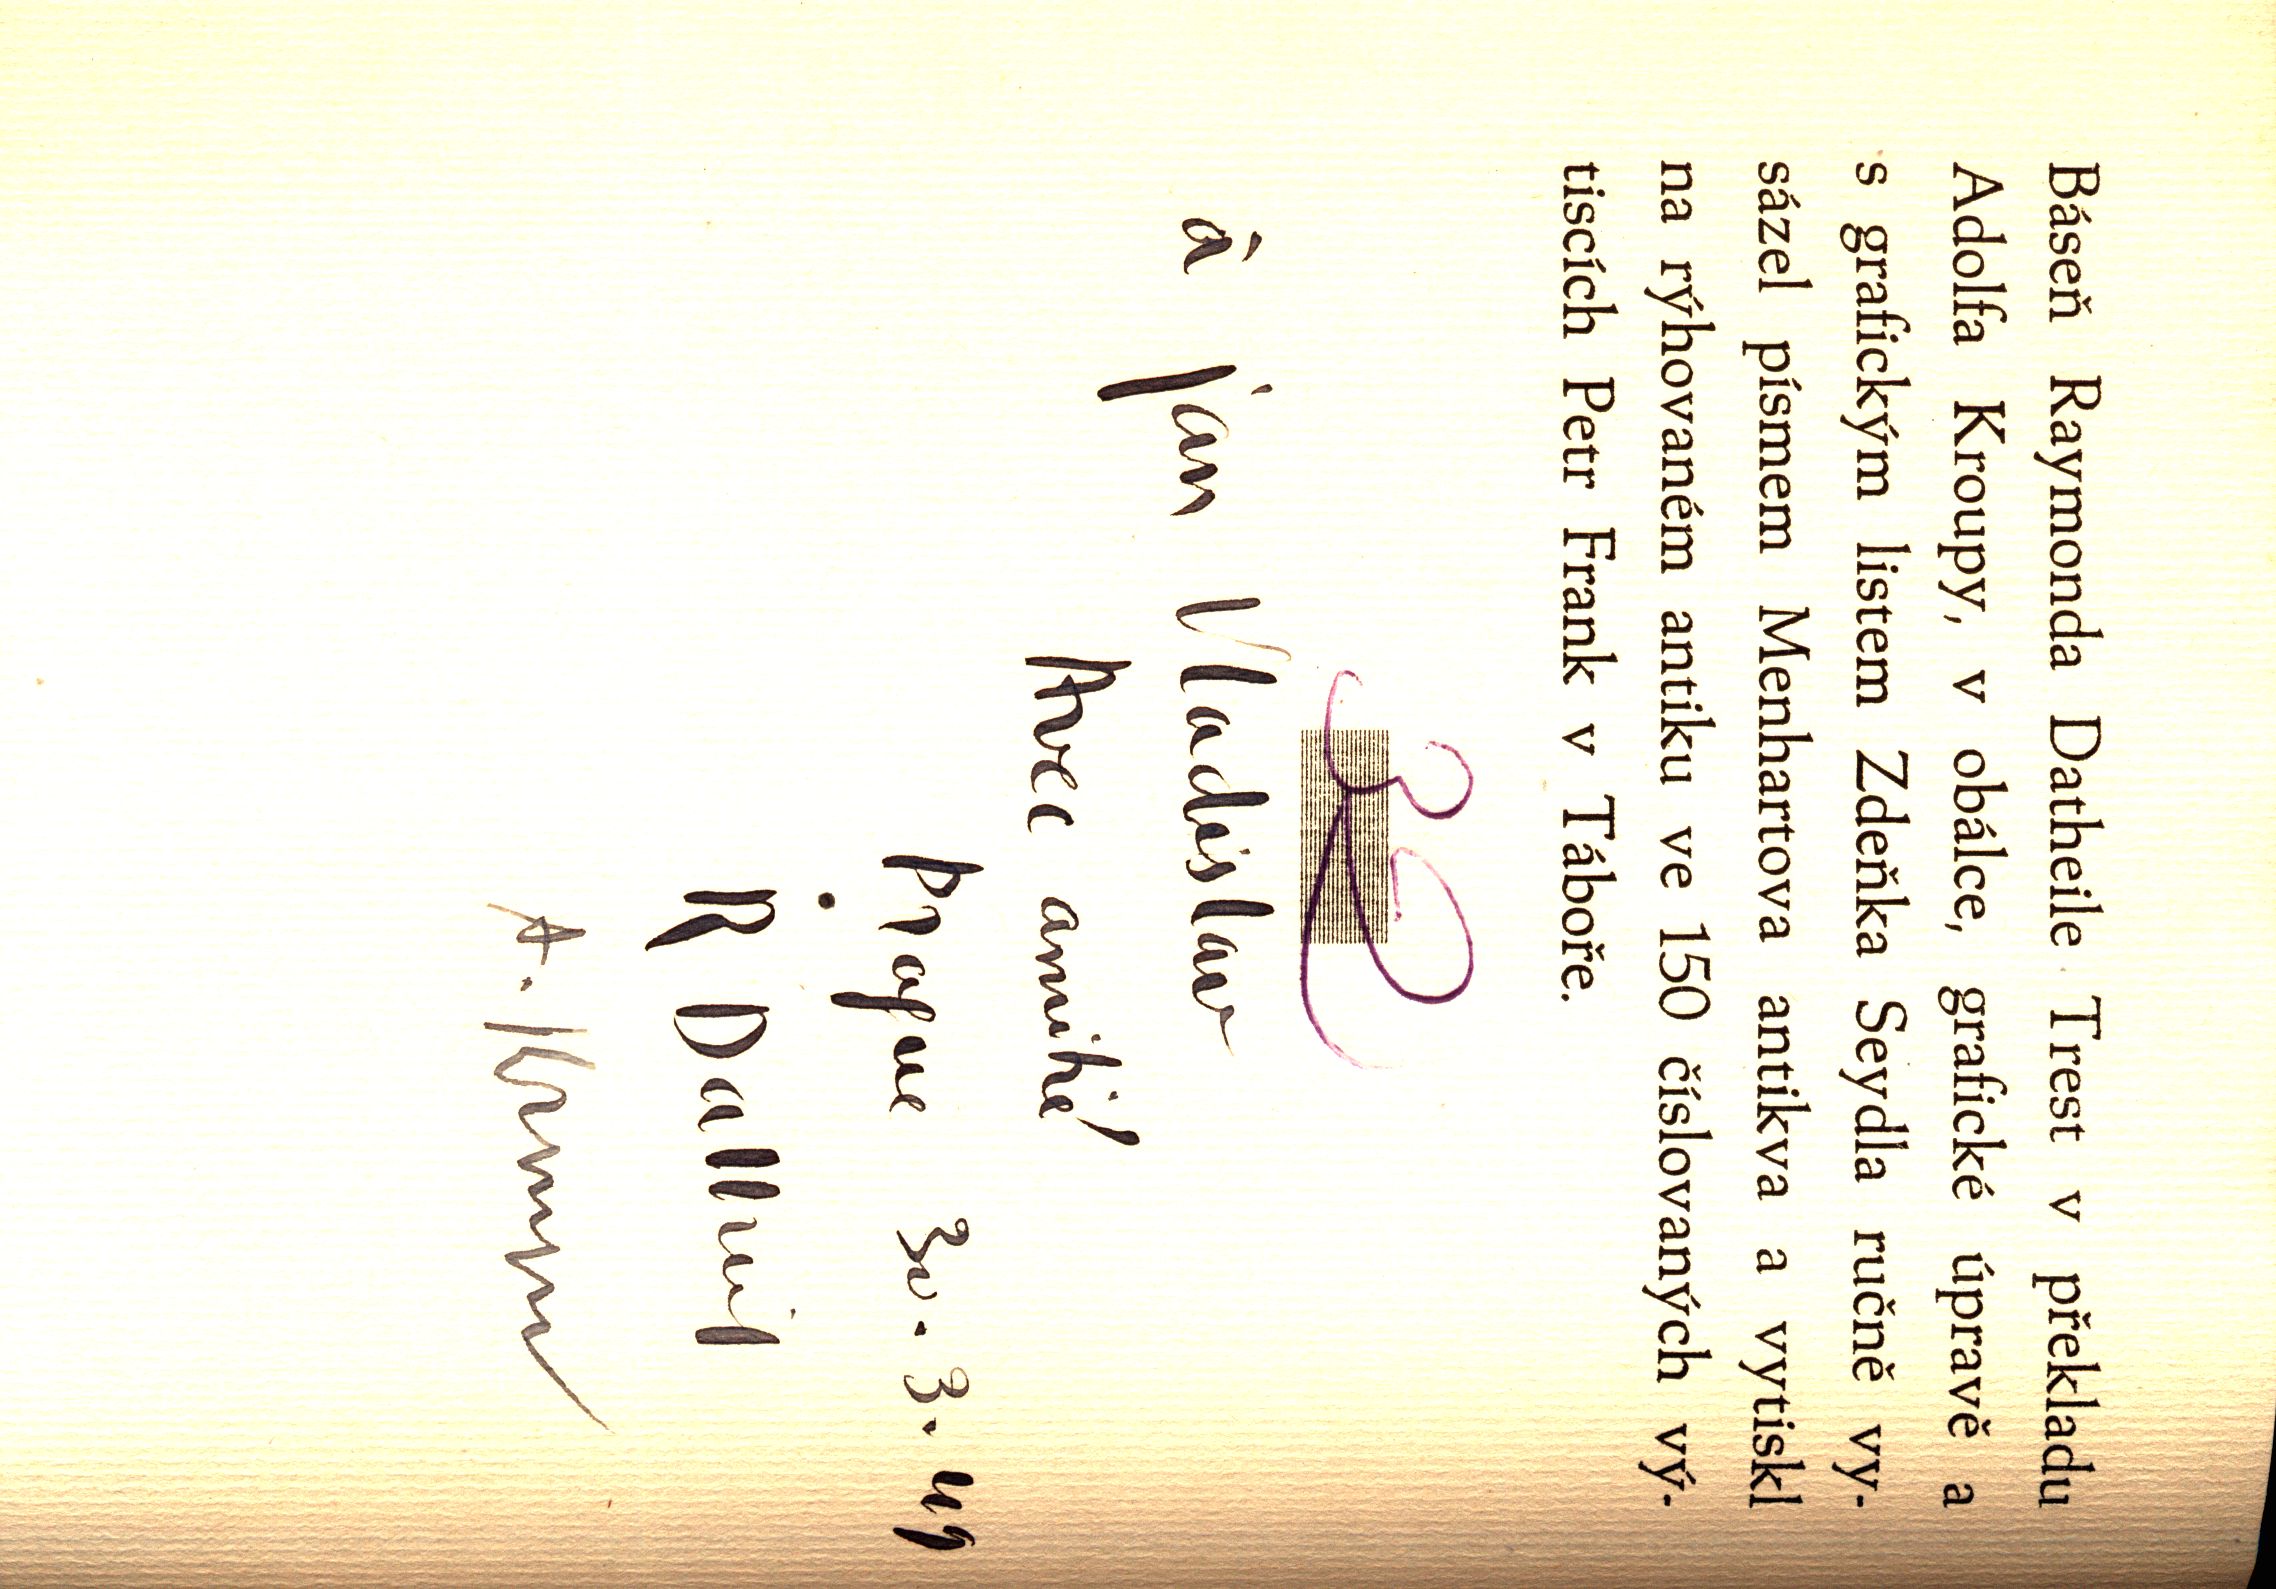 Báseň Raymonda Datheile Trest v překladu
Adolfa Kroupy, v obálce, grafické úpravě a
s grafickým listem Zdeňka Seydla ručně vy-
sázel písmem Menhartova antikva a vytiskl
na rýhovaném antiku ve 150 číslovaných vý-
tiscích Petr Frank v Táboře.
32
à Jan Vladislav
Avec amitié
Prague 30.3.49
R Datheil
A. Kroupa